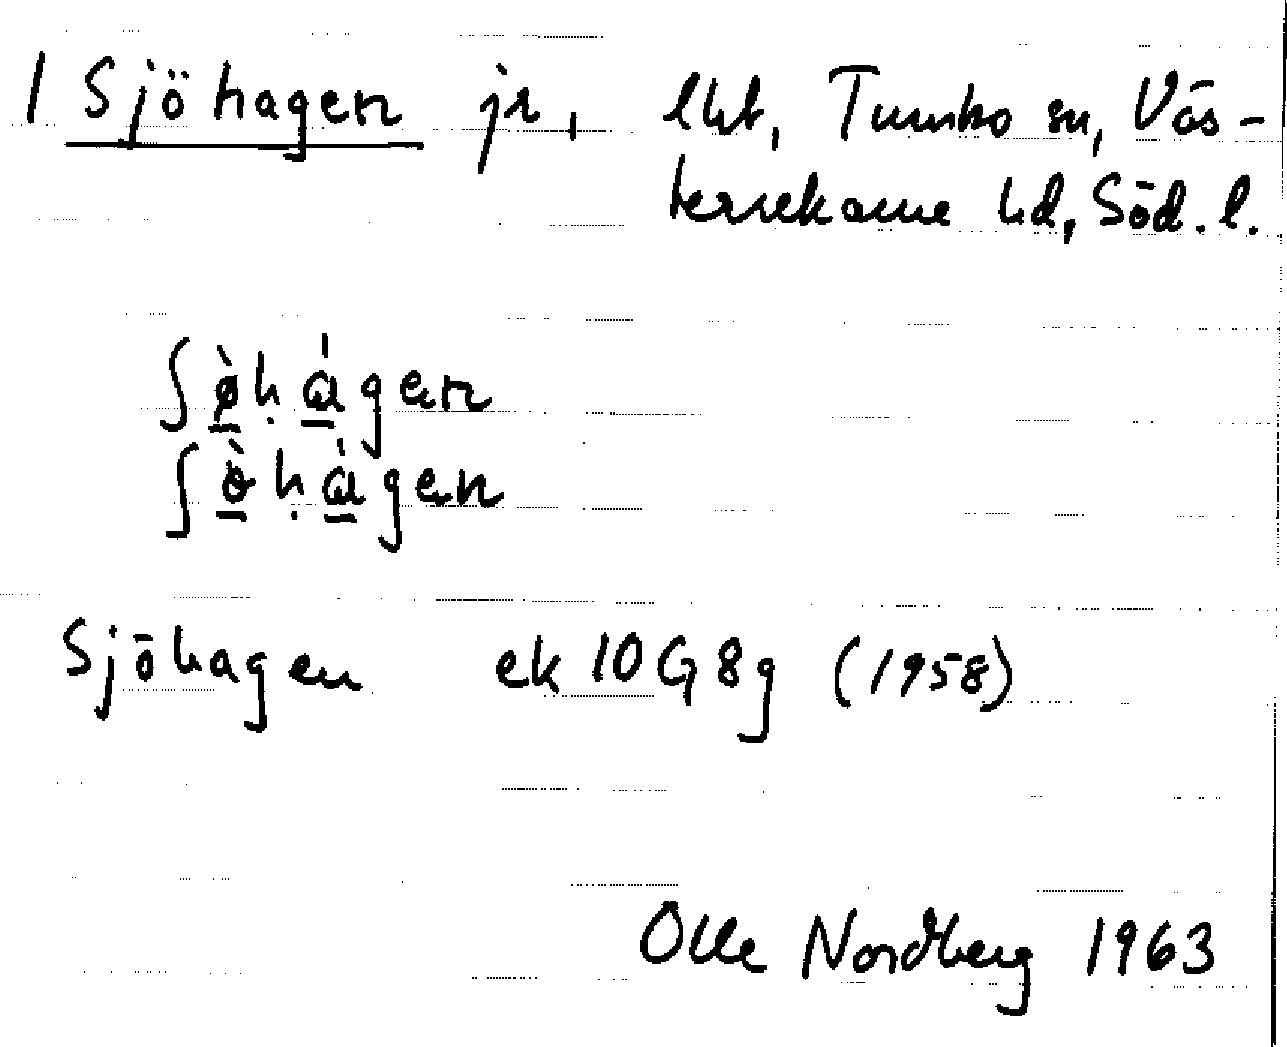 1 Sjöhagen jr, lht, Tumbo sn, Väs-
terrekarne hd, Söd. l.
ʃø̀hɑ́gen
ʃɵ̀hɑ̀gen
Sjöhagen ek 10G8g (1958)
Olle Nordberg 1963